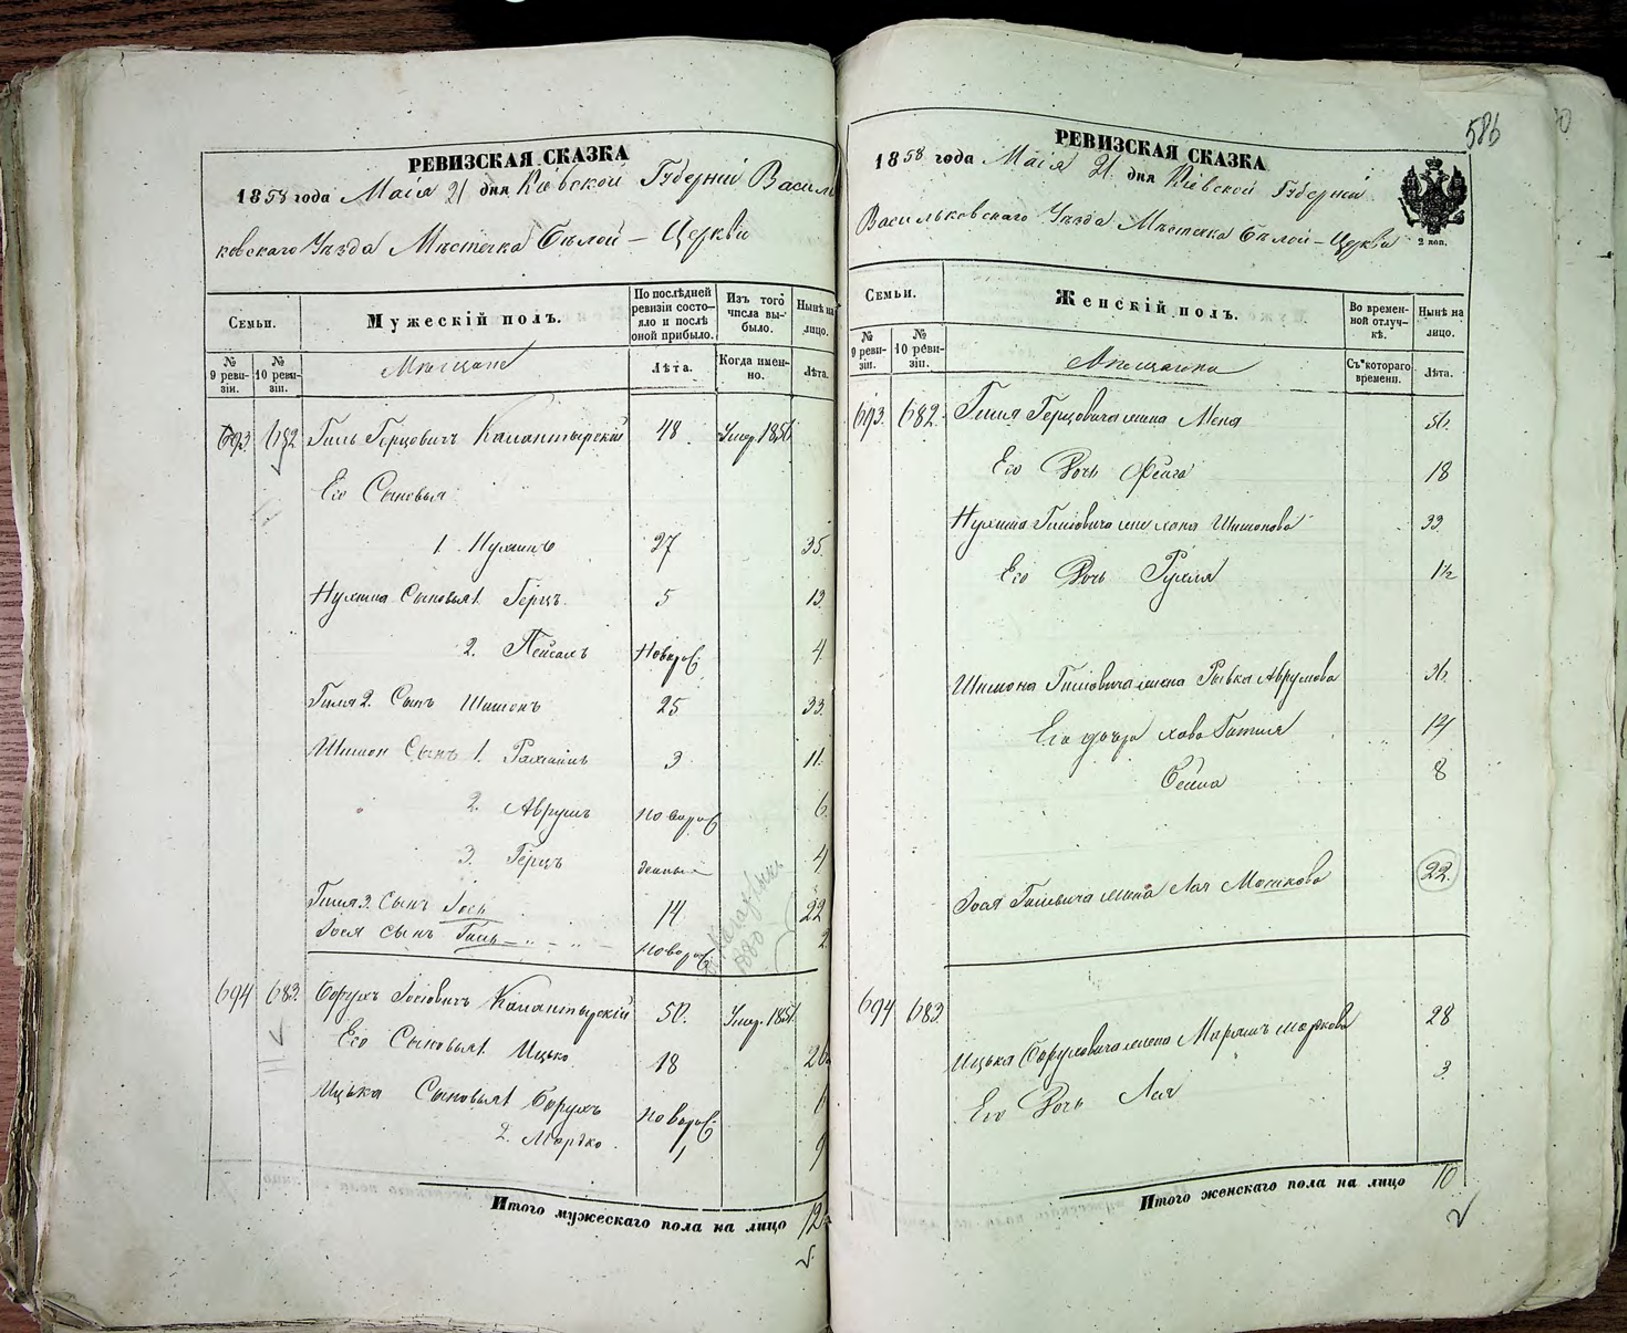 586
РЕВИЗСКАЯ СКАЗКА
1858 года Маія 21 дня Кіевской Губерніи Василь
ковскаго Уѣзда Мѣстечка Бѣлой - Церкви
Семьи.
Мужескій полъ.
По послѣдней ревизіи состо-
яло и послѣ оной прибыло.
Изъ того числа вы-
было.
Нынѣ на лицо.
№ 9 реви-
зіи.
№ 10 реви-
зіи.
Мѣщане
Лѣта.
Когда имен-
но.
Лѣта.
693 682 Гиль Герцовичъ Калантырскій 48 Умер. 1856
Его Сыновья
1. Нухимъ 27 35.
Нухима Сыновья 1. Герцъ 5 13.
2. Пейсахъ Новорож. 4
Гиля 2. Сынъ Шимонъ 25 33.
Шимон Сынъ 1. Рахмиль 3 11.
2. Аврумъ новорож 6
3. Герцъ 4
Гиля 3. Сынъ Іось 14 22
Іося сынъ Гиль - " - " - новорож. 2
1880
694 683. Борухъ Іосіовичъ Калантырскій 50. Умер. 1851.
Его Сыновья 1. Ицько 18 26
Ицька Сыновья 1 Борухъ новорож. 6
2. Мордко 1 9
Итого мужескаго пола на лицо 12
РЕВИЗСКАЯ СКАЗКА
1858 года Маія 21. дня Кіевской Губерніи
Васильковскаго Уѣзда Мѣстечка Бѣлой - Церкви
2 коп.
Семьи.
Женскій полъ.
Во времен-
ной отлуч-
кѣ.
Нынѣ на лицо.
№ 9 реви-
зіи.
№ 10 реви-
зіи.
Мѣщанки
Съ котораго времени.
Лѣта.
693. 682. Гиля Герцовича жена Меня 56.
Его Дочь Фейга 18
Нухима Гиліовича жена Хана Шимонова 33
Его Дочь Рухля 1½
Шимона Гиліовича жена Рывка Аврумова 36.
Его дочери Хава Гитля 14
Бейла 8
Іося Гильевича жена Лая Мошкова 22.
694 683.
Ицька Боруховича жена Мирьямъ Маркова 28
Его Дочь Лая 3.
Итого женскаго пола на лицо 10